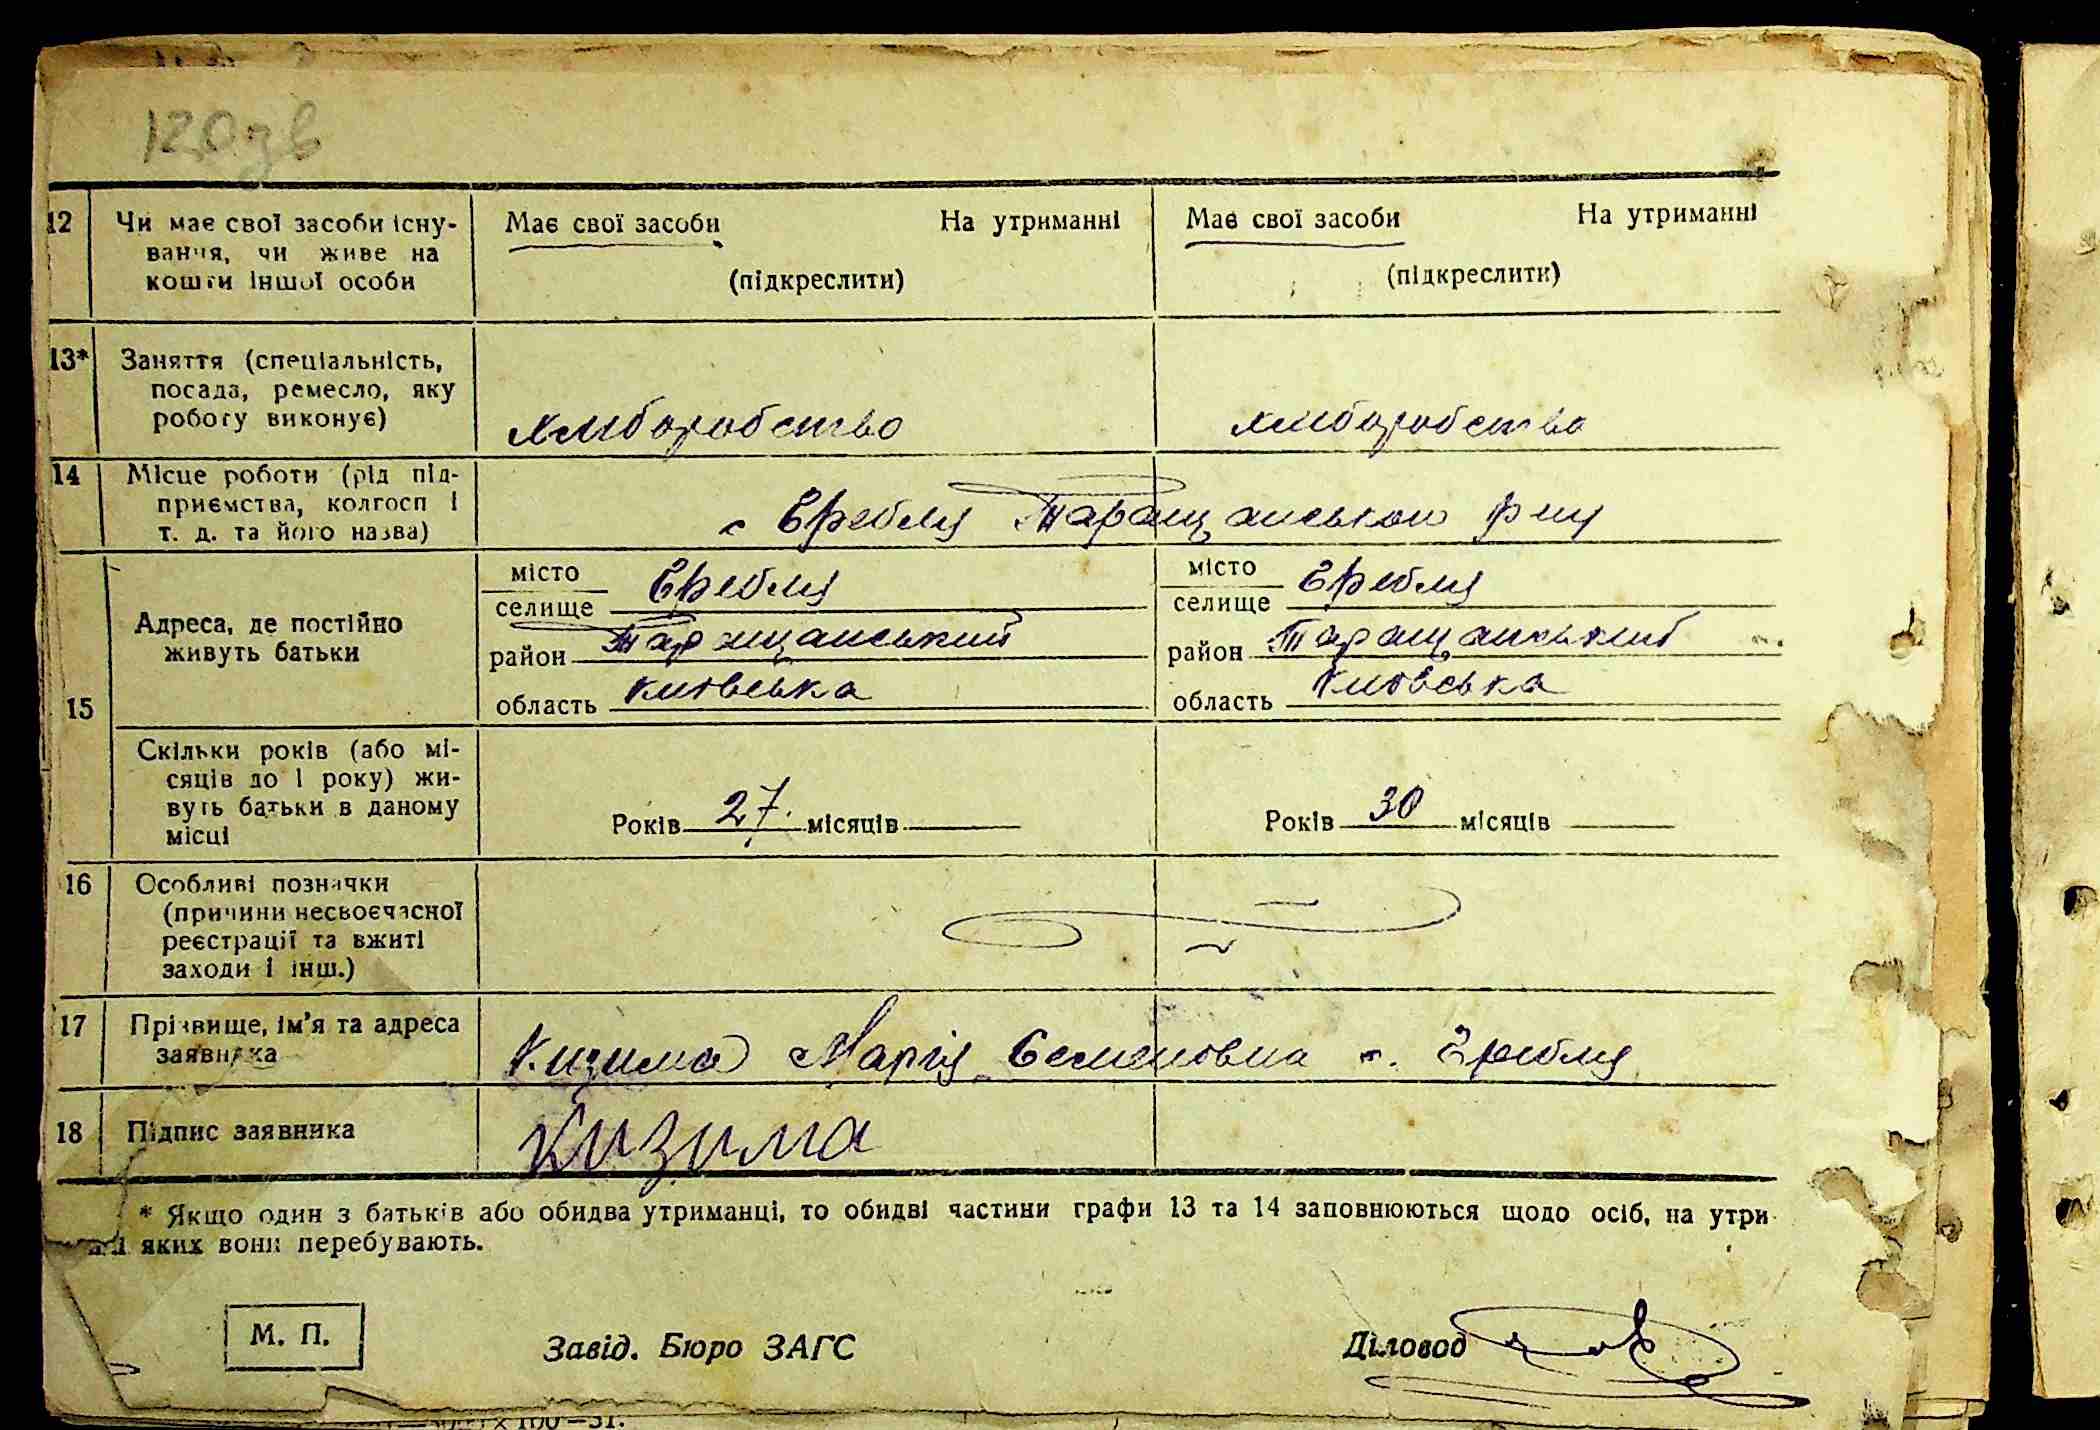 120 зв
12 Чи має свої засоби існу- Має свої засоби На утриманні Має свої засоби На утриманні
вання, чи живе на
кошти іншої особи (підкреслити) (підкреслити)
13* Заняття (спеціальність,
посада, ремесло, яку
роботу виконує) хліборобство хліборобство
14 Місце роботи (рід під-
приємства, колгосп і
т. д. та його назва) с Гребля Таращанського р ну
15 Адреса, де постійно
живуть батьки
місто Гребля місто Гребля
селище селище
район Таращанський район Таращанський
область Київська область Київська
Скільки років (або мі-
сяців до 1 року) жи-
вуть батьки в даному
місці
Років 27. місяців Років 30 місяців
16 Особливі позначки
(причини несвоєчасної
реєстрації та вжиті
заходи і інш.)
17 Прізвище, ім'я та адреса
заявника Кизима Марія Семеновна с. Гребля
18 Підпис заявника Кизима
* Якщо один з батьків або обидва утриманці, то обидві частини графи 13 та 14 заповнюються щодо осіб, на утри-
яких вони перебувають.
М. П. Завід. Бюро ЗАГС Діловод